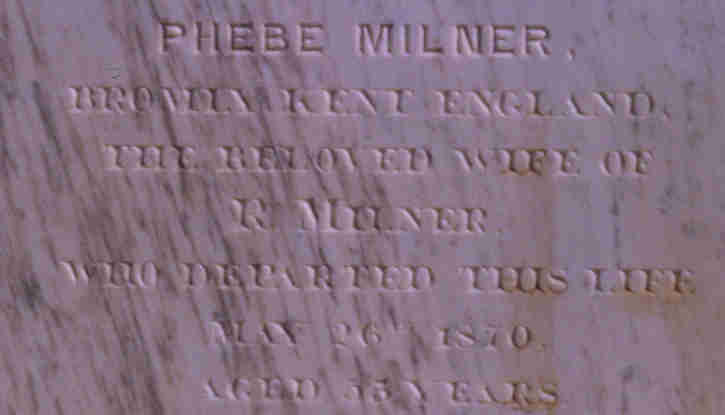 PHEBE MILNER,
KENT ENGLAND,
THE BELOVED WIFE OF
R. MILNER
WHO DEPARTED THIS LIFE
MAY 26TH 1870.
AGED YEARS